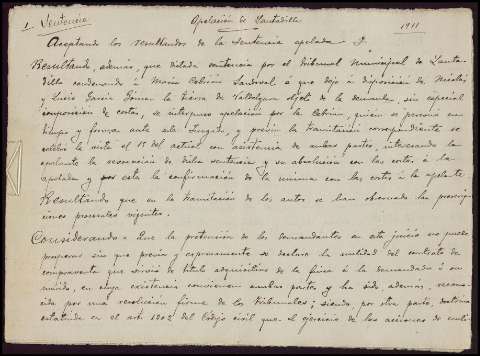 1. Sentencia
Apelación de Santadilla
1911
Aceptando los resultandos de la sentencia apelada. y.
Resultando, además, que dictada sentencia por el Tribunal Municipal de Santa-
dilla condenando á María Cebrián Sandoval á que deje á disposición de Nicolás
y Lucio García Gómez la tierra de objeto de la demanda, sin especial
imposición de costas, se interpuso apelación por la Cebrián, quien se personó en
tiempo y forma ante este Juzgado, y previa la tramitación correspondiente se
celebró la vista el 15 del actual con asistencia de ambas partes, interesando la
apelante la revocación de dicha sentencia y su absolución con las costas á la
apelada y por esta la confirmación de la misma con las costas á la apelante.
Resultando que en la tramitación de los autos se han observado las prescrip-
ciones procesales vigentes.
Considerando = Que la pretensión de los demandantes en este juicio no puede
prosperar sin que previa y expresamente se declare la nulidad del contrato de
compraventa que sirvió de título adquisitivo de la finca á la demandada ó su
marido, en cuya existencia convienen ambas partes y ha sido además, recono-
cida por una resolución firme de los Tribunales; siendo por otra parte, doctrina
estatuida en el art. 1302 del Código civil que el ejercicio de las acciones de nuli-